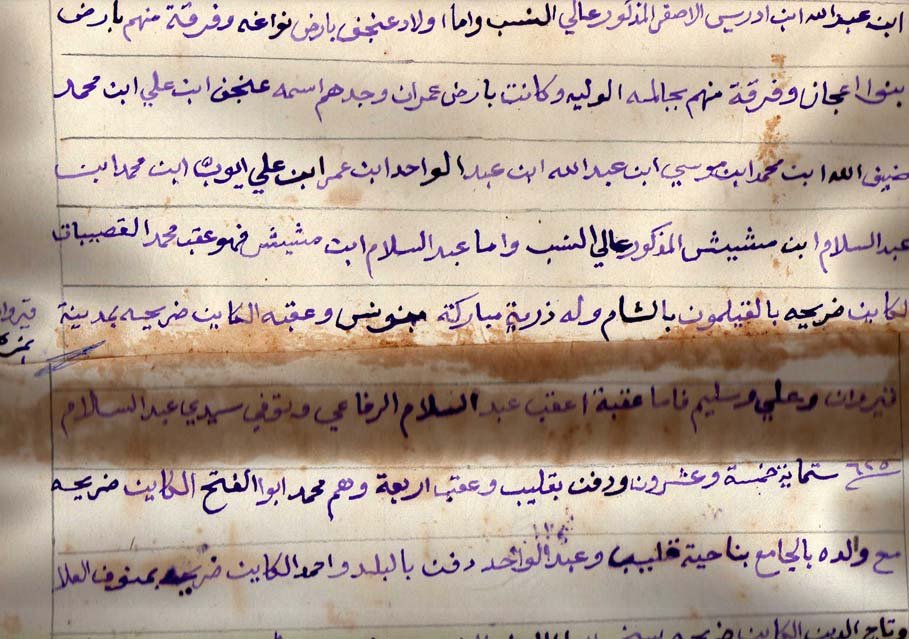 ابن عبد الله ابن ادريس الاصغر المذكور عالي النسب واما اولاد عنجف بارض نواغه وفرقة منهم بارض
بنوا اعجاز وفرقة منهم بجالمه الوليه وكانت بارض عمران وجدهم اسمه عنجف ابن علي ابن محمد
ضيف الله ابن محمد ابن موسي ابن عبد الله ابن عبد الواحد ابن عمر ابن علي ايوب ابن محمد ابن
عبد السلام ابن مشيش المذكور عالي النسب واما عبد السلام ابن مشيش فهو عقب محمد القصيبات
الكاين ضريحه بالقيلمون بالشام وله ذرية مباركة بتونس وعقبه الكاين ضريحه بمدينة
قيروان وعلي وسليم فاما عقبة اعقب عبد السلام الرفاعي وتوفي سيدي عبد السلام
٦٢٥ ستماية خمسة وعشرون ودفن بقليب وعقب اربعة وهم محمد ابوا الفتح الكاين ضريحه
مع والده بالجامع بناحية قليب وعبد الواحد دفن بالبلد واحمد الكاين ضريحه بمنوف العلا
وتاج الدين الكاين ضريحه